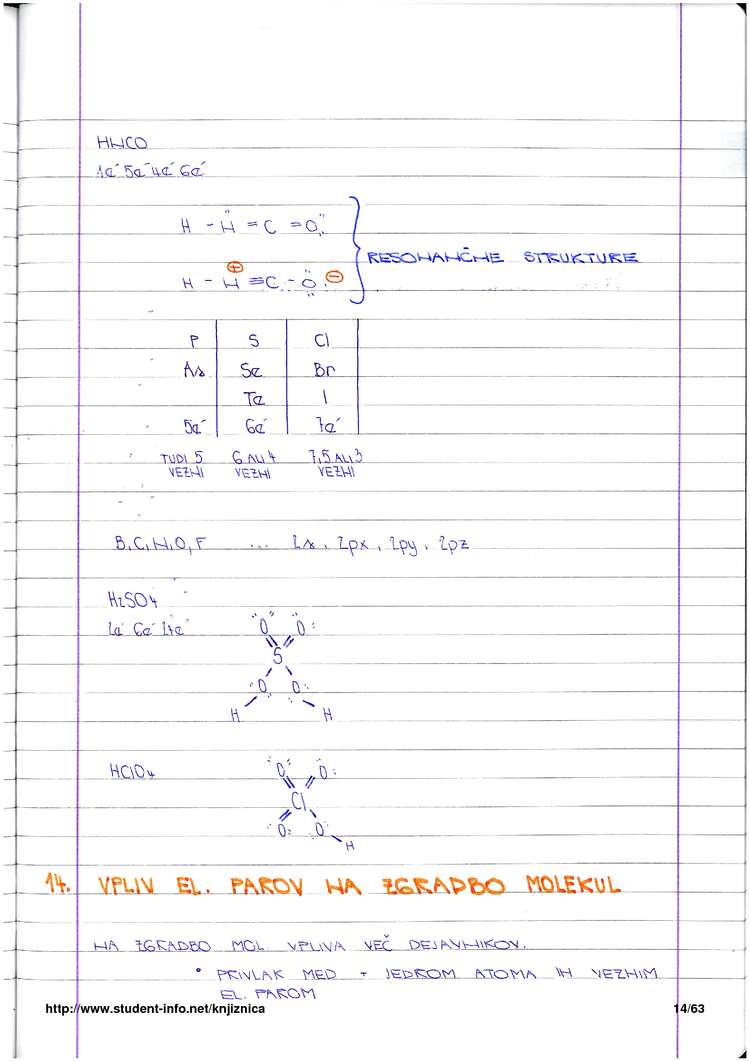 HNCO
1e⁻ 5e⁻ 4e⁻ 6e⁻
H - N̈ = C = O:
RESONANČNE STRUKTURE
H - N⊕ ≡ C - O: ⊖
P | S | Cl
As | Se | Br
Te | I
5e⁻ | 6e⁻ | 7e⁻
TUDI 5 6 ALI 4 7,5 ALI 3
VEZNI VEZNI VEZNI
B, C, N, O, F ... 2s, 2px, 2py, 2pz
H₂SO₄
2e⁻ 6e⁻ 24e⁻
O O
S
O O
H H
HClO₄
O O
Cl
O O
H
14. VPLIV EL. PAROV NA ZGRADBO MOLEKUL
NA ZGRADBO MOL. VPLIVA VEČ DEJAVNIKOV.
• PRIVLAK MED + JEDROM ATOMA IN VEZNIM
EL. PAROM
http://www.student-info.net/knjiznica 14/63